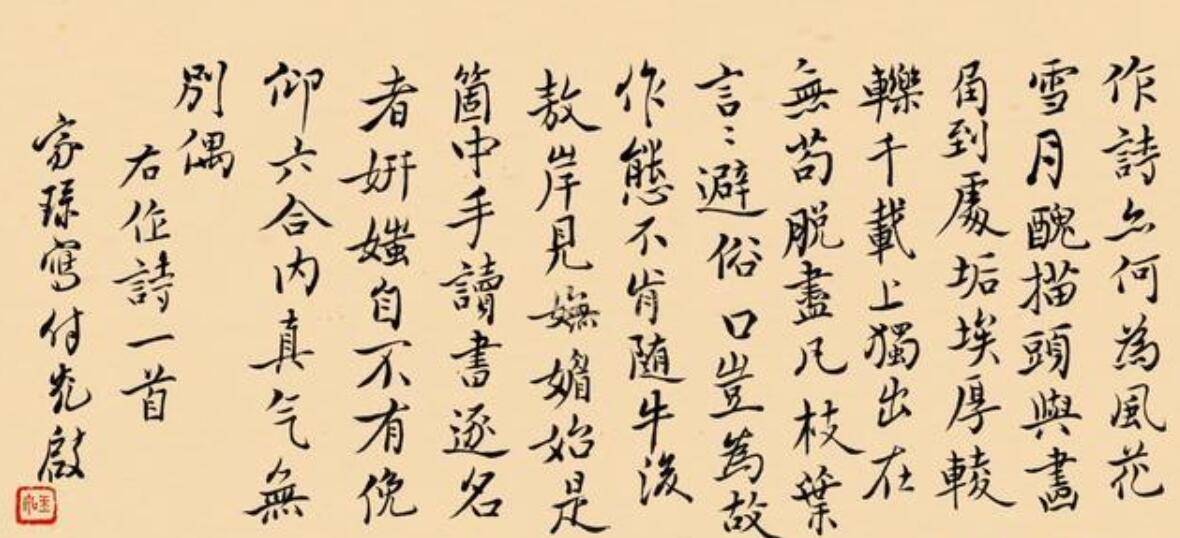 作詩亦何為風花
雪月醜描頭與畫
角到處垢埃厚輘
轢千載上獨出在
無苟脫盡凡枝葉
言〻避俗口豈為故
作態不肯隨牛後
敖岸見嫵媚始是
箇中手讀書逐名
者妍媸自不有俛
仰六合內真气無
別偶
右作詩一首
家琭寫付光啟